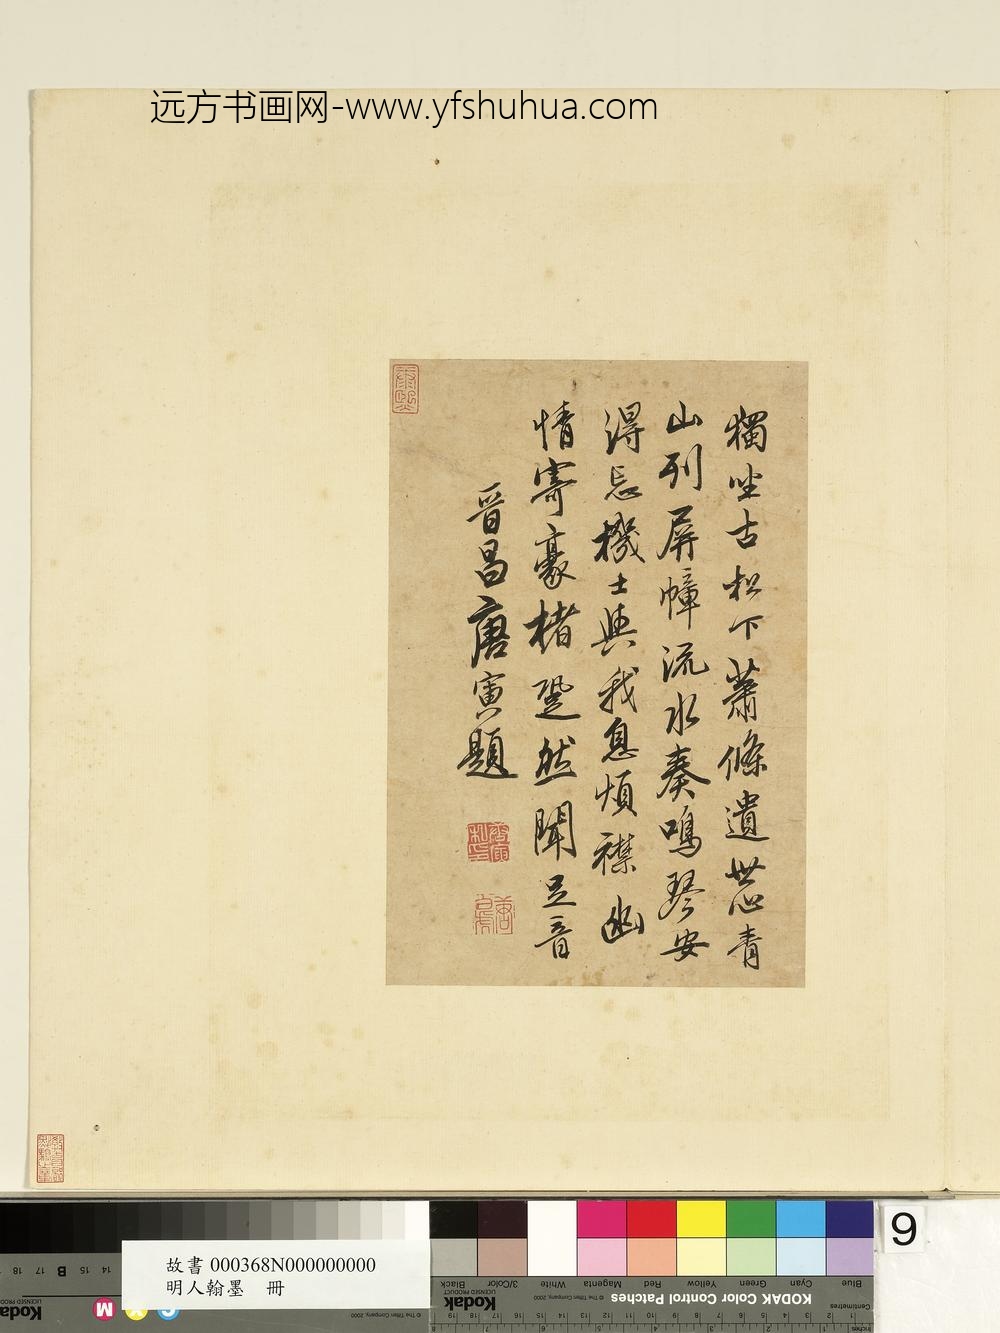 远方书画网-www.yfshuhua.com
獨坐古松下蕭條遺世心青
山列屏幛流水奏鳴琴安
得忘機士與我息煩襟幽
情寄豪楮跫然聞足音
晉昌唐寅題
9
故書 000368N000000000
明人翰墨 冊
KODAK Color Control Patches
Blue Cyan Green Yellow Red Magenta White 3/Color Black
Kodak
LICENSED PRODUCT
© The Tiffen Company, 2000
Centimetres
Inches
18 17 B 15 14
M Y C